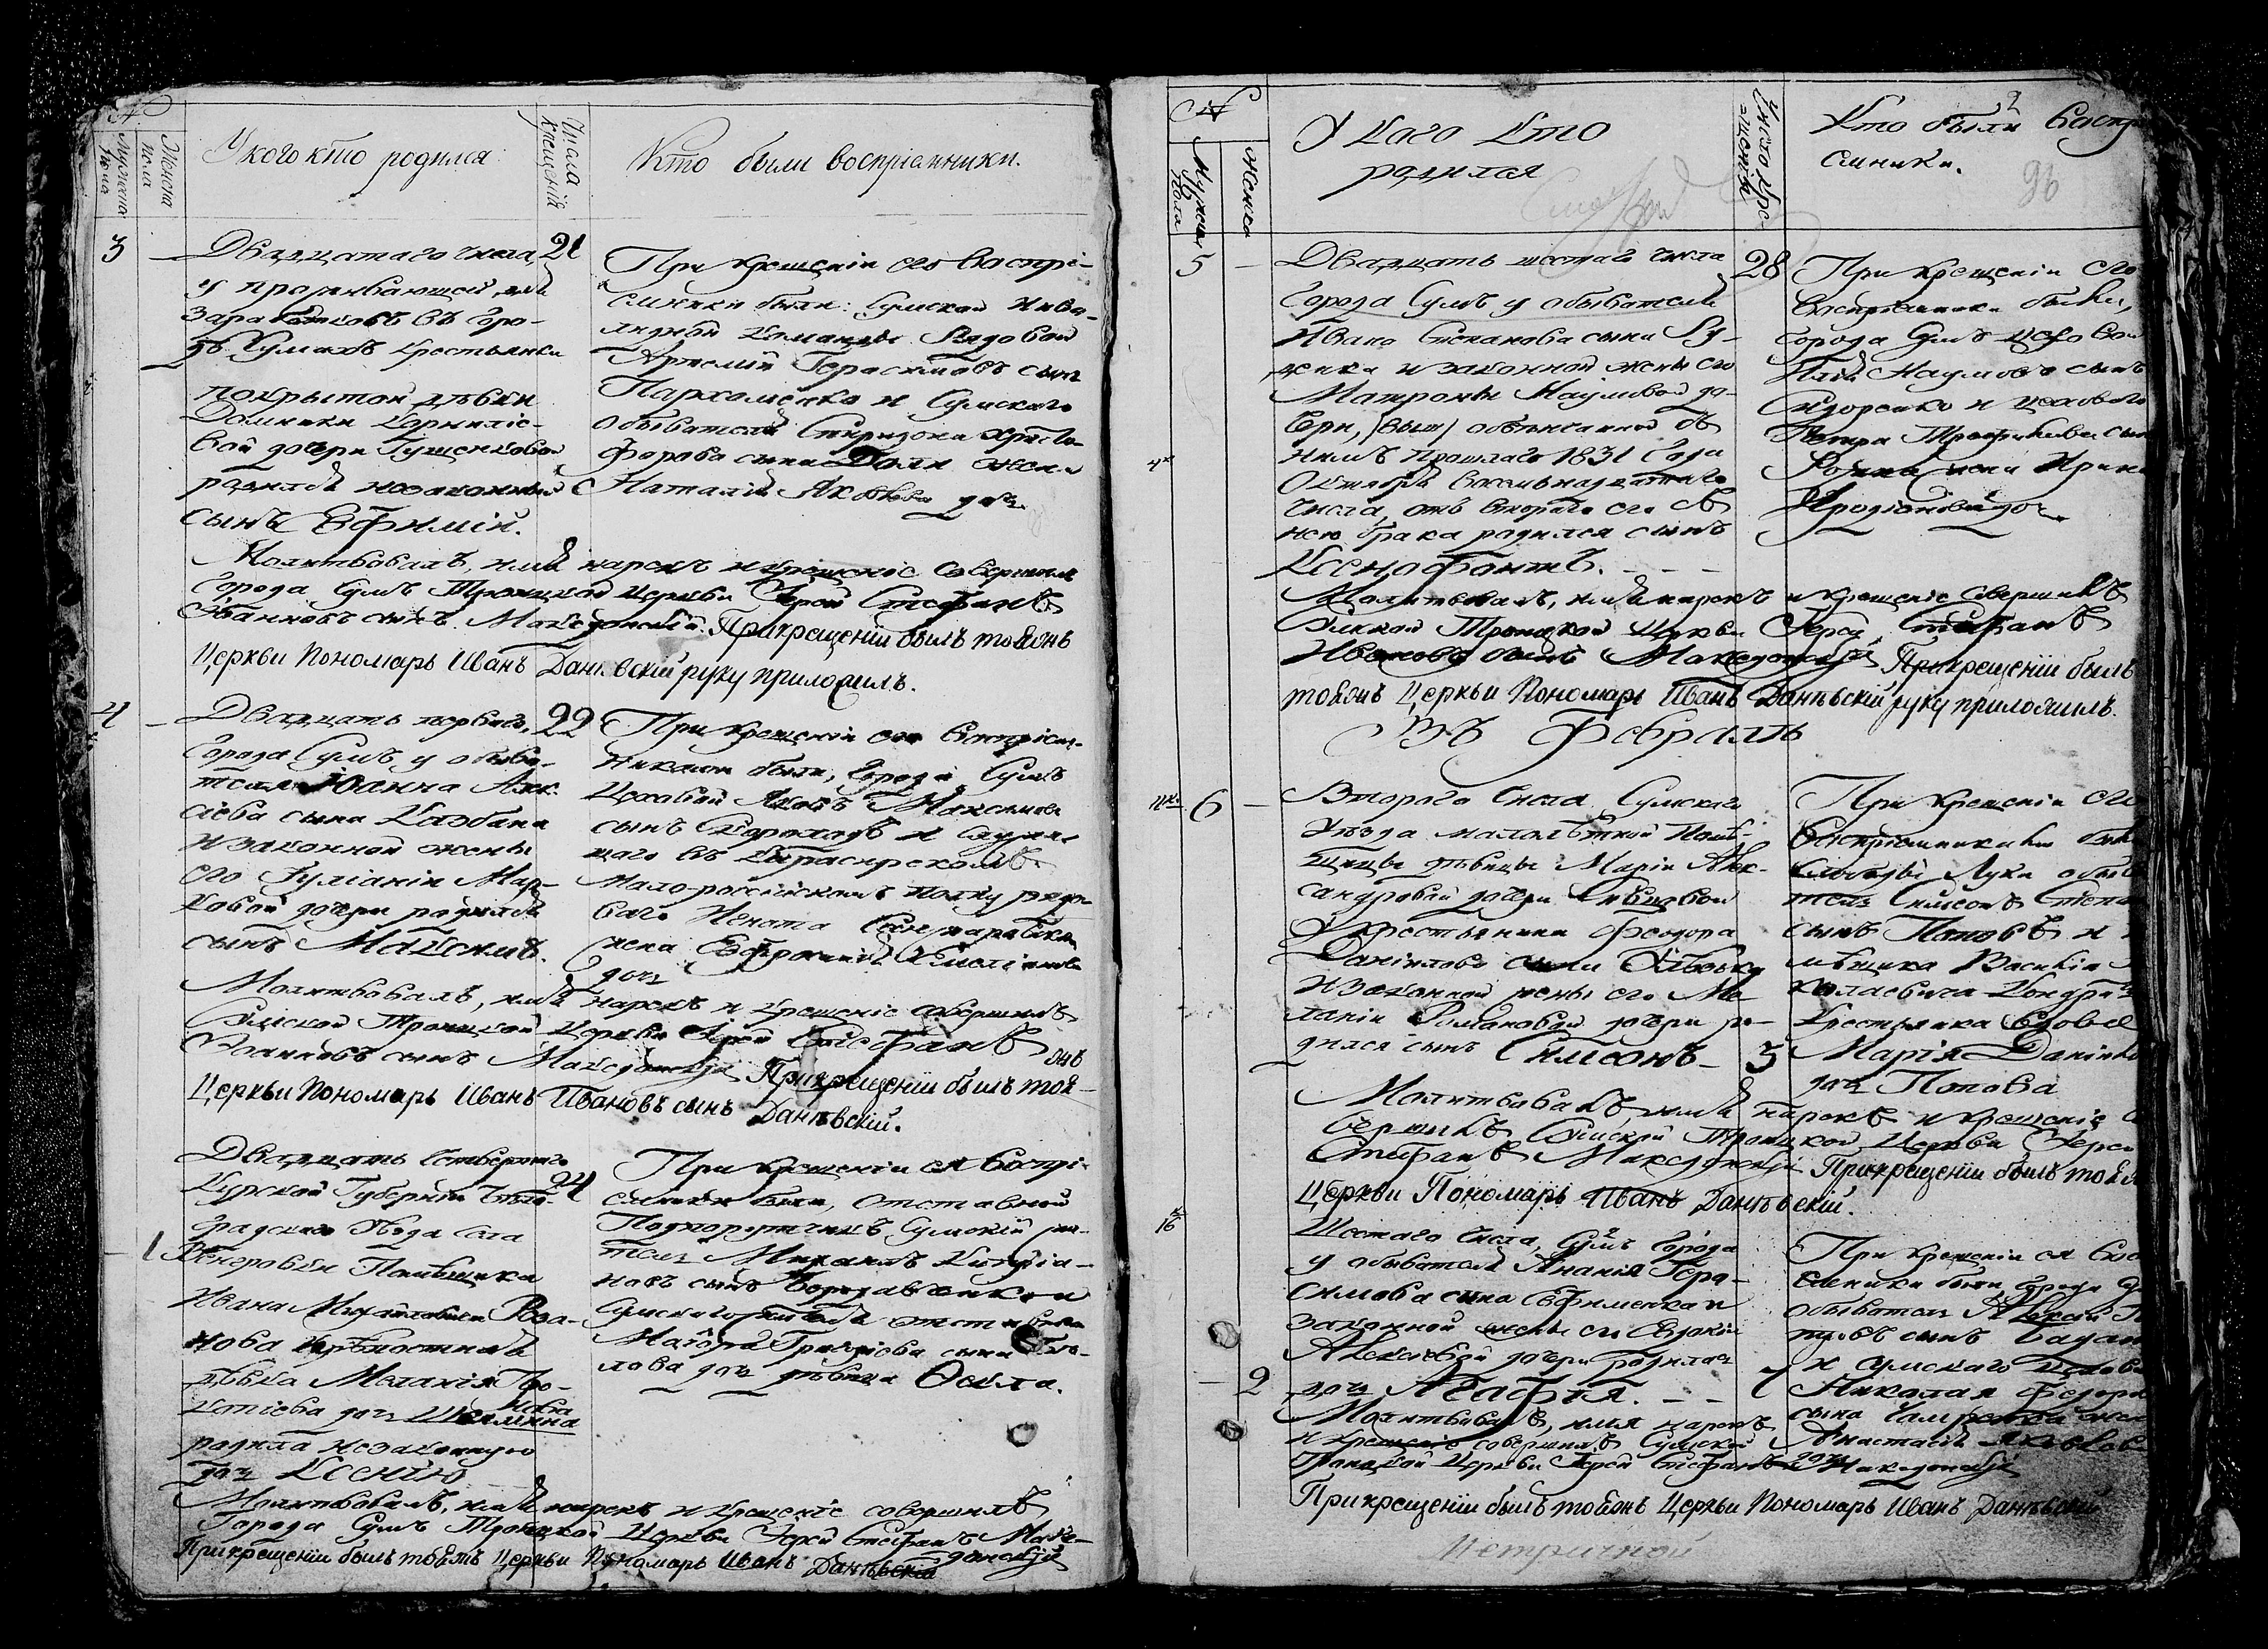 №
Мужска пола
Женска пола
У кого кто родился
Числа крещенія
Кто были воспріемники.
3
Двадцатаго числа,
21
у проживающей для
заработковъ въ горо-
дѣ Сумахъ крестьянки
покрытой дѣвки
Домники Корниліе-
вой дочери Гущенковой
родился незаконный
сынъ Евфимій.
При крещеніи его воспрі-
емники были: Сумской Инва-
лидной команды Рядовой
Артемій Герасимовъ сынъ
Пархоменко и Сумскаго
обывателя Спиридона Христо-
форова сына жена
Наталія Яковлева дочь
Молитвовалъ, имя нарекъ и крещеніе совершилъ
города Сумъ Троицкой Церкви Іерей Стефанъ
Іоанновъ сынъ Македонскій. При крещеніи былъ тояжъ
Церкви Пономарь Иванъ Данѣвскій руку приложилъ.
4
Двадцать перваго,
22
города Сумъ, у обыва-
теля Іоанна Алек-
сіева сына
и законной жены
его Іуліаніи Мар-
ковой дочери родился
сынъ Максимъ.
При крещеніи его воспріем-
никами были, города Сумъ
Цеховой Яковъ Максимовъ
сынъ и служа-
щаго въ Кирасирскомъ
Мало-россійскомъ полку рядо-
ваго
жена Евфросинія Емеліанова
дочь
Молитвовалъ, имя нарекъ и крещеніе совершилъ
Сумской Троицкой Церкви Іерей Стефанъ
Іоанновъ сынъ Македонскій При крещеніи былъ тояжъ
Церкви Пономарь Иванъ Ивановъ сынъ Данѣвскій.
Двадцать четвертаго
24
Курской Губерніи Бѣло-
градскаго Уѣзда села
1
Помѣщика
Ивана Михайловича
нова крѣпостная
дѣвка Меланія Про-
копіева дочь
родила незаконную
дочь Ксенію
При крещеніи ея воспрі-
емники были, отставной
Подпорутчикъ Сумскій жи-
тель Михаилъ Кипріа-
новъ сынъ
Сумскаго жителя отставнаго
Маіора Григорія сына
дочь дѣвица Ѳекла.
Молитвовалъ, имя нарекъ и крещеніе совершилъ
города Сумъ Троицкой Церкви Іерей Стефанъ Маке-
донскій
При крещеніи былъ тояжъ Церкви Пономарь Иванъ Данѣвскій
№
Мужска пола
Женска
У каго кто
родился
Число кре-
щенія
Кто были воспр
емники.
2
96
5
Двадцать шестаго числа
28
города Сумъ у обывателя
Ивана Степанова сына
и законной жены его
Матроны Наумовой до-
чери, обвѣнчанной съ
нимъ прошлаго 1831 года
Октября восемьнадцатаго
числа, отъ втораго его съ
нею брака родился сынъ
Ксенофонтъ.
При крещеніи его
воспріемники были,
города Сумъ цеховой
Наумовъ сынъ
Сидоренко и цеховаго
Петра Трофимова сына
жена Ирина
Иродіонова дочь
Молитвовалъ, имя нарекъ и крещеніе совершилъ
Сумской Троицкой Церкви Іерей Стефанъ
Ивановъ сынъ Македонскій При крещеніи былъ
тояжъ Церкви Пономарь Иванъ Данѣвскій руку приложилъ.
Въ Февралѣ
6
Втораго числа Сумскаго
Уѣзда малолѣтной Помѣ-
щицы дѣвицы Маріи Алек-
сандровой дочери
У крестьянина Феодора
Даніилова сына
и законной жены его Ме-
ланіи Романовой дочери ро-
дился сынъ Симеонъ
3
При крещеніи его
воспріемниками были
слободы Луки обыва
тель Симеонъ Степа
сынъ Поповъ и
мѣщика Василія
колаевича
крестьянка вдова
Марія Данилова
дочь Попова
Молитвовалъ, имя нарекъ и крещеніе со
вершилъ Сумской Троицкой Церкви Іерей
Стефанъ Македонскій При крещеніи былъ тояжъ
Церкви Пономарь Иванъ Данѣвскій.
16
Шестаго числа, Сумъ города
у обывателя Ананія Гера-
симова сына Ефименка и
законной жены его Евдокіи
Алексѣевой дочери родилась
2
дочь Агафія.
7
При крещеніи ея вос
емники были, города
обыватель
сынъ
и Сумскаго цеховаго
Николая Федоро
сына жена
Анастасія Яковлева
дочь
Молитвовалъ, имя нарекъ
и крещеніе совершилъ Сумской
Троицкой Церкви Іерей Стефанъ Македонскій
При крещеніи былъ тояжъ Церкви Пономарь Иванъ Данѣвскій
Метричной